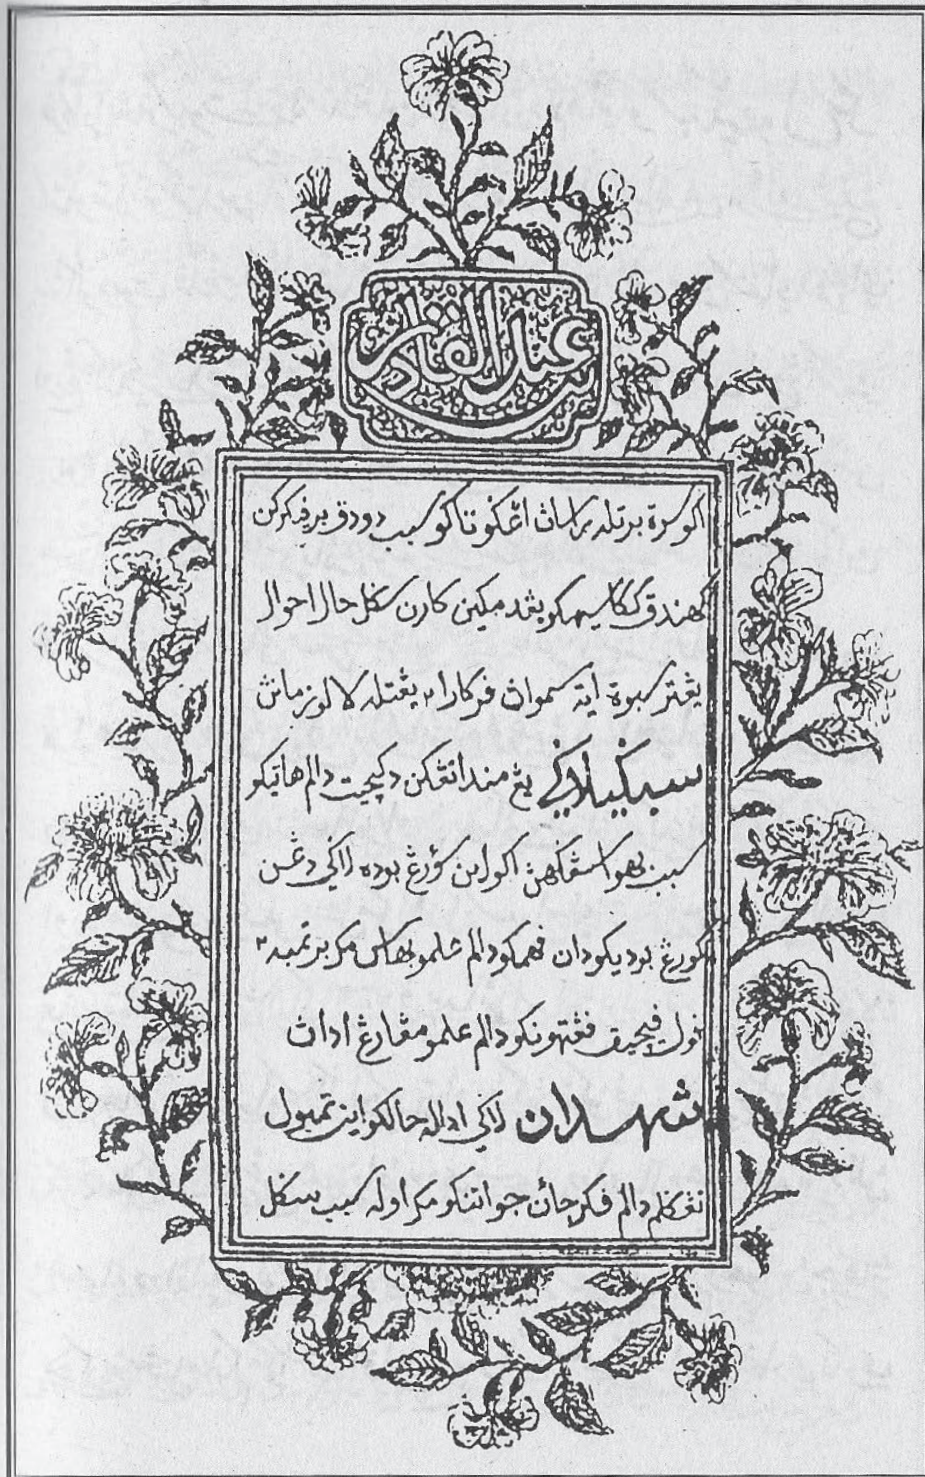 عبد القادر
اکو سرة برتله براساڽ اڠکوتاکو سبب دودق برفيکرکن
کهندق ککاسيهکو يڠدمکين کارن سکل حال احوال
يڠترسبوة ايت سمواڽ فرکارا٢ يڠتله لالو زمانڽ
سبݢيلاݢي يڠ مندا تڠکن دکچيت دالم هاتيکو
سبب بهواسڠݢهڽ اکو اين سؤرڠ بوده لاکي دڠن
کورڠ بوديکو دان فهمکو دالم علمو بهاس مک برتمبه٢
فول فيچيق فڠتهونکو دالم علمو مڠارڠ اداڽ
شهدان لاکي اداله حالکو اين تمبول
تڠکلم دالم فکرجاءن جواتنکو مک اوله سبب سکل